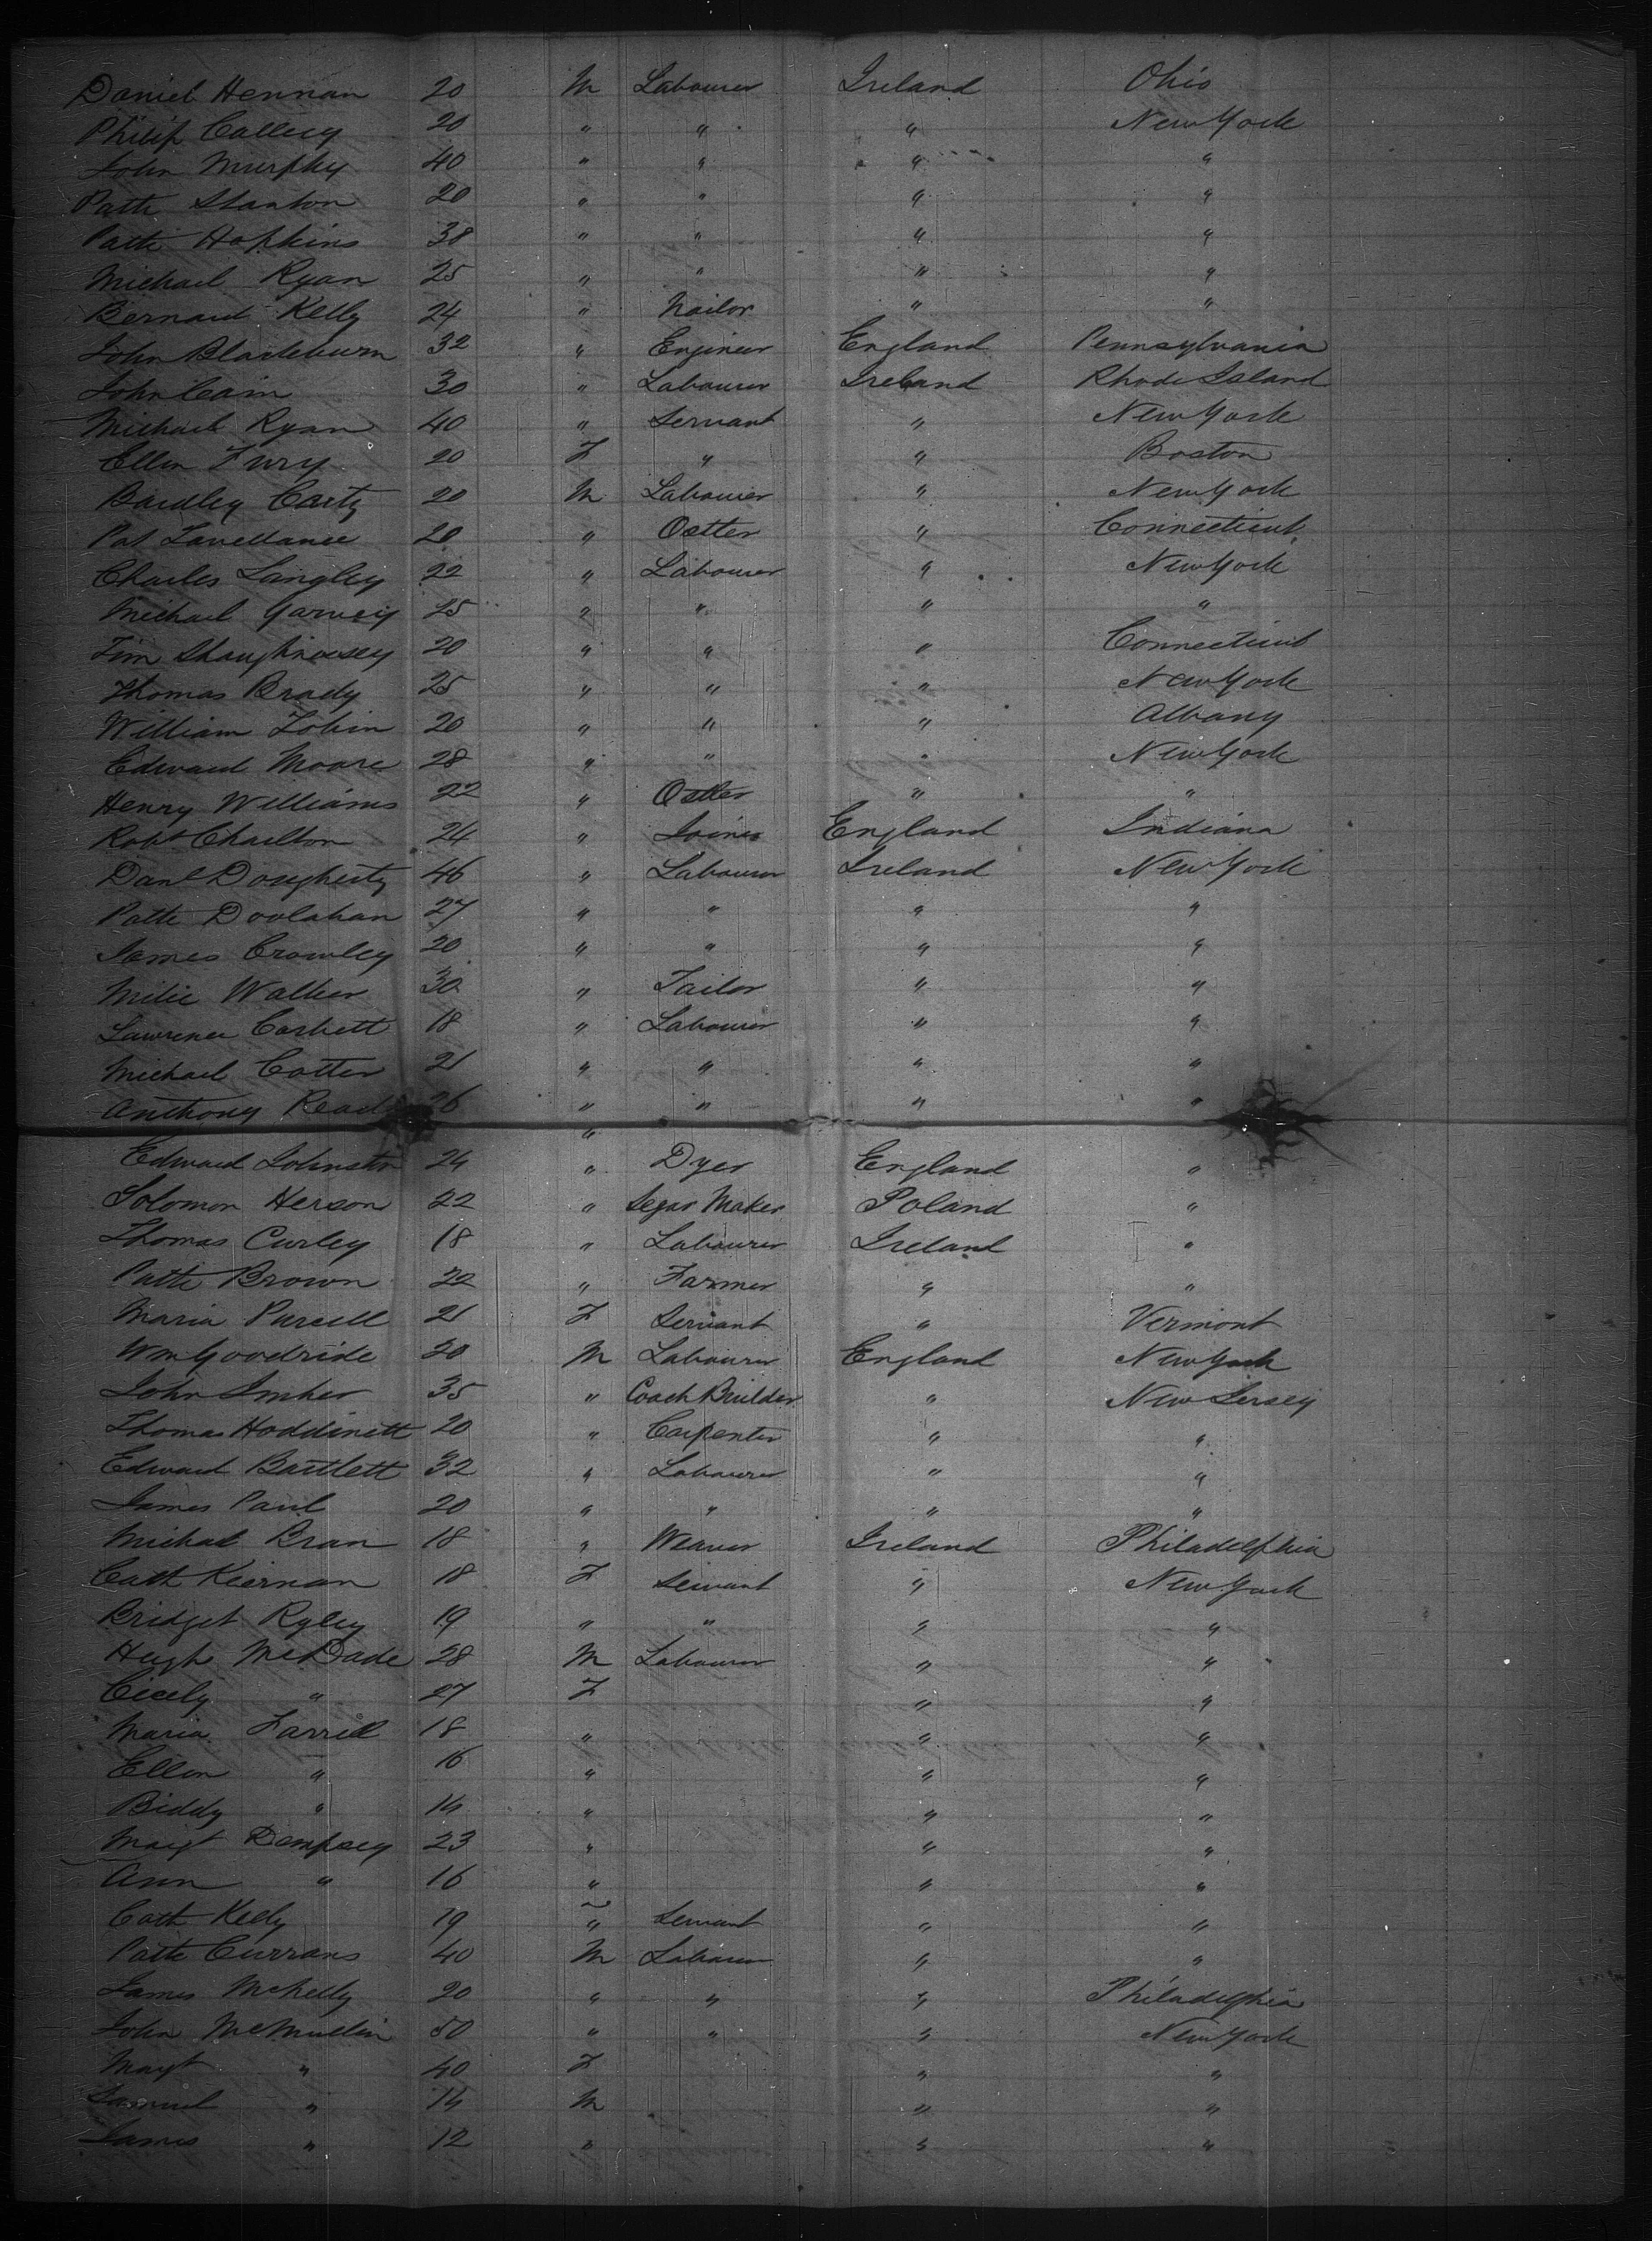 Daniel Hennan 20 M Labourer Ireland Ohio
Philip Callery 20 " " " New York
John Murphy 40 " " " "
Patk Stanton 20 " " " "
Patk Hopkins 38 " " " "
Michael Ryan 25 " " " "
Bernard Kelly 24 " Nailor " "
John Blackburn 32 " Engineer England Pennsylvania
John Cain 30 " Labourer Ireland Rhode Island
Michael Ryan 40 " Servant " New York
Ellen Fury 20 F " " Boston
Bardley Carty 20 M Labourer " New York
Pat 20 " Ostler " Connecticut
Charles Langley 22 " Labourer " New York
Michael Garvey 25 " " " "
Tim Shaughnessy 20 " " " Connecticut
Thomas Brady 25 " " " New York
William Tobin 20 " " " Albany
Edward Moore 28 " " " New York
Henry Williams 22 " Ostler " "
Robt Charlton 24 " Joiner England Indiana
Danl Dougherty 46 " Labourer Ireland New York
Patk Doolahan 27 " " " "
James Crowley 20 " " " "
Milie Walker 30 " Tailor " "
Lawrence Corbett 18 " Labourer " "
Michael Cotter 21 " " " "
Anthony Read 26 " " " "
"
Edward Johnston 24 " Dyer England "
Solomon Herson 22 " Segar Maker Poland "
Thomas Curley 18 " Labourer Ireland "
Patk Brown 22 " Farmer " "
Maria Purcell 21 F Servant " Vermont
Wm Goodride 20 M Labourer England New York
John Imher 35 " Coach Builder " New Jersey
Thomas Hoddinett 20 " Carpenter " "
Edward Bartlett 32 " Labourer " "
James Paul 20 " " " "
Michael Bran 18 " Weaver Ireland Philadelphia
Cath Kiernan 18 F Servant " New York
Bridget Ryley 19 " " " "
Hugh McDade 28 M Labourer " "
Cicely " 27 F " "
Maria Farrell 18 " " "
Ellen " 16 " " "
Biddy " 14 " " "
Margt Dempsey 23 " " "
Ann " 16 " " "
Cath Kelly 19 " Servant " "
Patk Currans 40 M Labourer " "
James McKelly 20 " " " Philadelphia
John McMullin 50 " " " New York
Margt " 40 F " "
Samuel " 14 M " "
James " 12 " " "